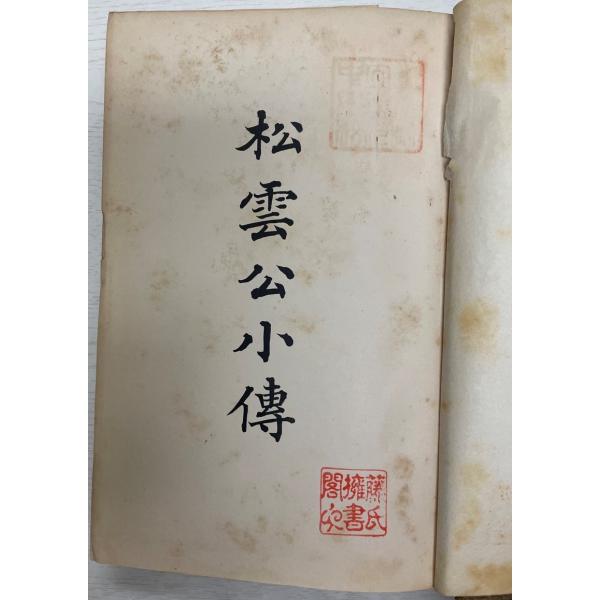 松雲公小傳
藤氏
擁書
閣